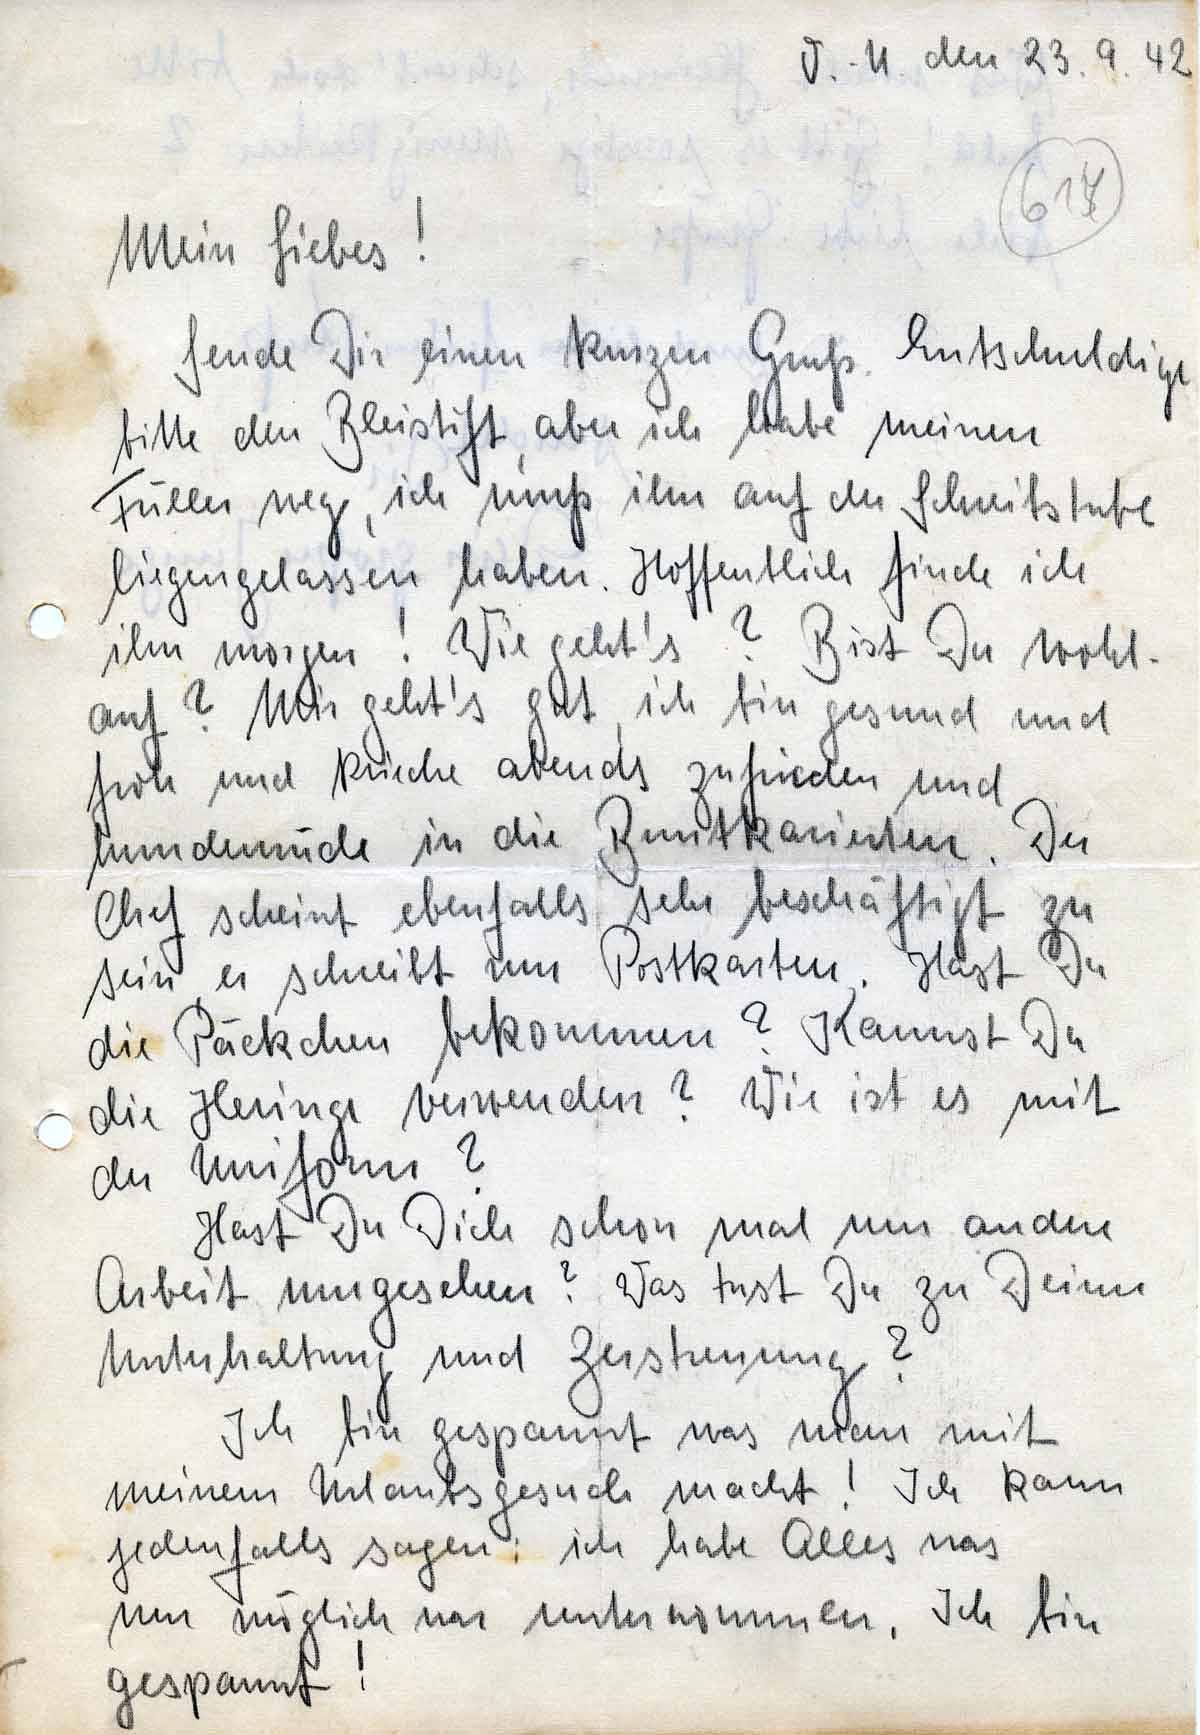 O.U. den 23.9.42
617
Mein Liebes!
Sende Dir einen kurzen Gruß. Entschuldige
bitte den Bleistift, aber ich habe meinen
Füller weg, ich muß ihn auf der Schreibstube
liegengelassen haben. Hoffentlich finde ich
ihn morgen! Wie geht's? Bist Du wohl-
auf? Mir geht's gut, ich bin gesund und
froh und krieche abends zufrieden und
hundemüde in die Buntkarierten. Der
Chef scheint ebenfalls sehr beschäftigt zu
sein, er schreibt nur Postkarten. Hast Du
die Päckchen bekommen? Kannst Du
die Heringe verwenden? Wie ist es mit
der Uniform?
Hast Du Dich schon mal um andere
Arbeit umgesehen? Was tust Du zu Deiner
Unterhaltung und Zerstreuung?
Ich bin gespannt was man mit
meinem Urlaubsgesuch macht! Ich kann
jedenfalls sagen: ich habe Alles was
nur möglich war unternommen. Ich bin
gespannt!